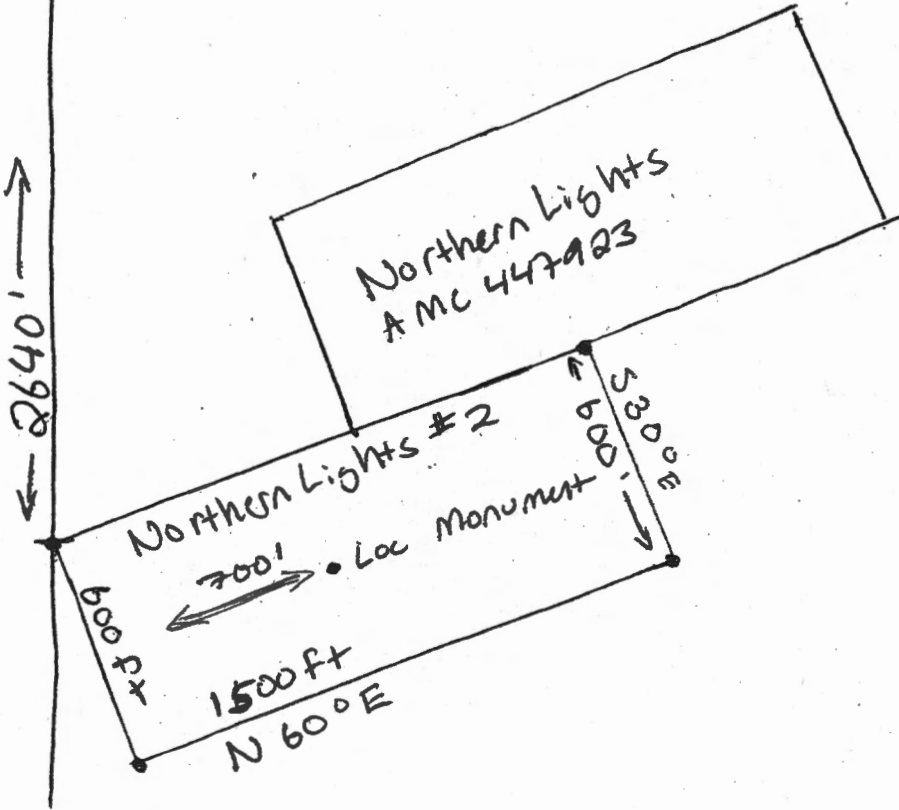 2640'
Northern Lights
AMC 447923
Northern Lights #2
600'
S30°E
Loc Monument
700'
600 ft
1500 ft
N 60° E